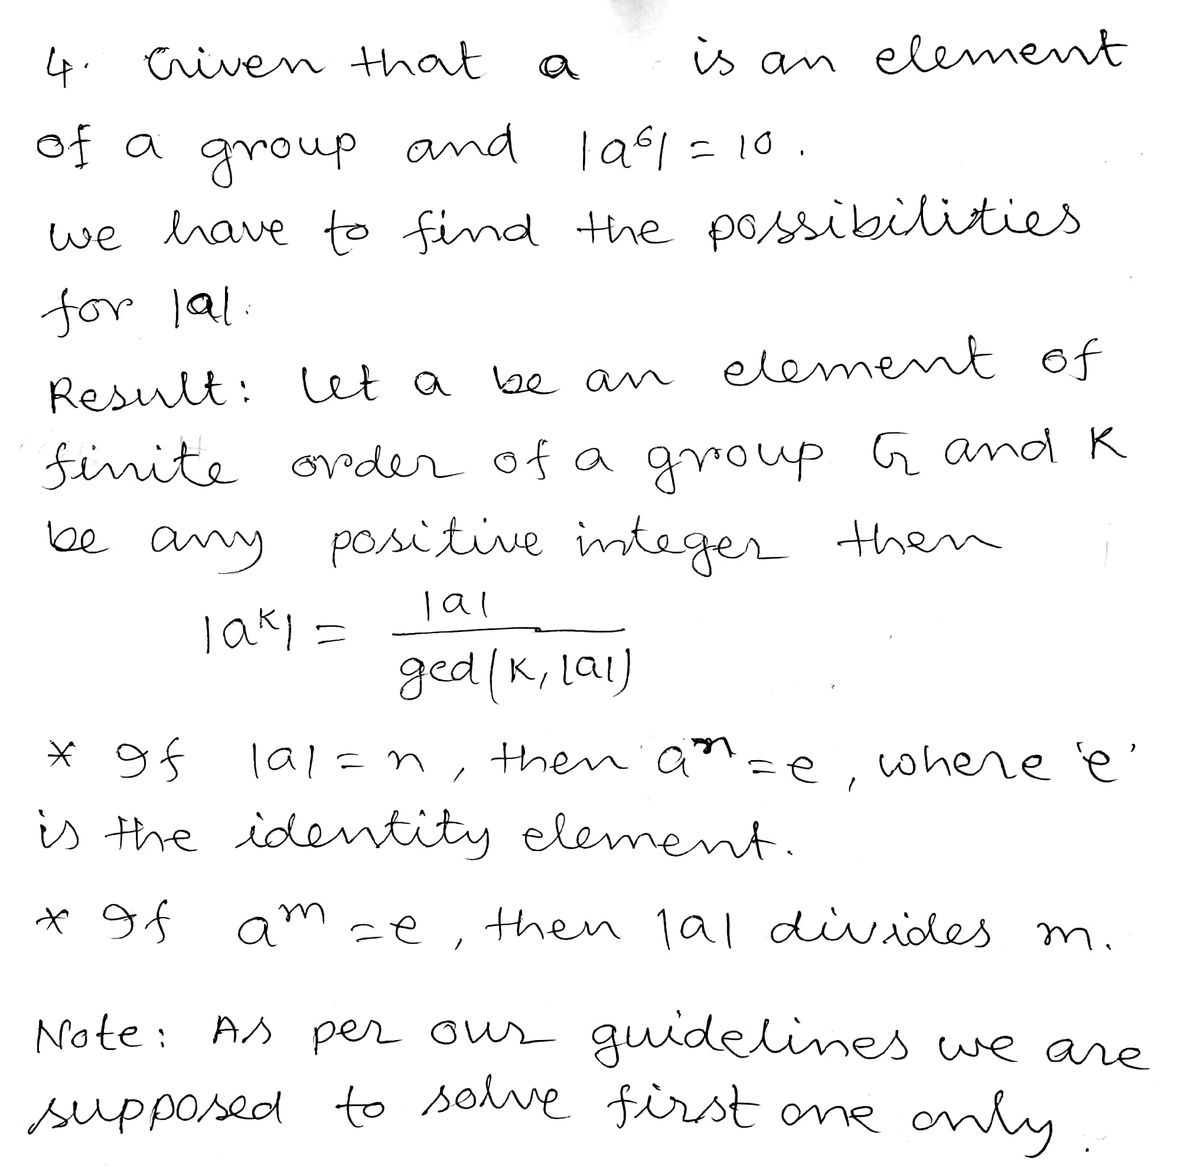 4. Given that a is an element
of a group and |a⁶| = 10.
we have to find the possibilities
for |a|.
Result: Let a be an element of
finite order of a group G and K
be any positive integer then
|aᴷ| = |a| / gcd(K, |a|)
* If |a| = n, then aⁿ = e, where 'e'
is the identity element.
* If aᵐ = e, then |a| divides m.
Note: As per our guidelines we are
supposed to solve first one only.